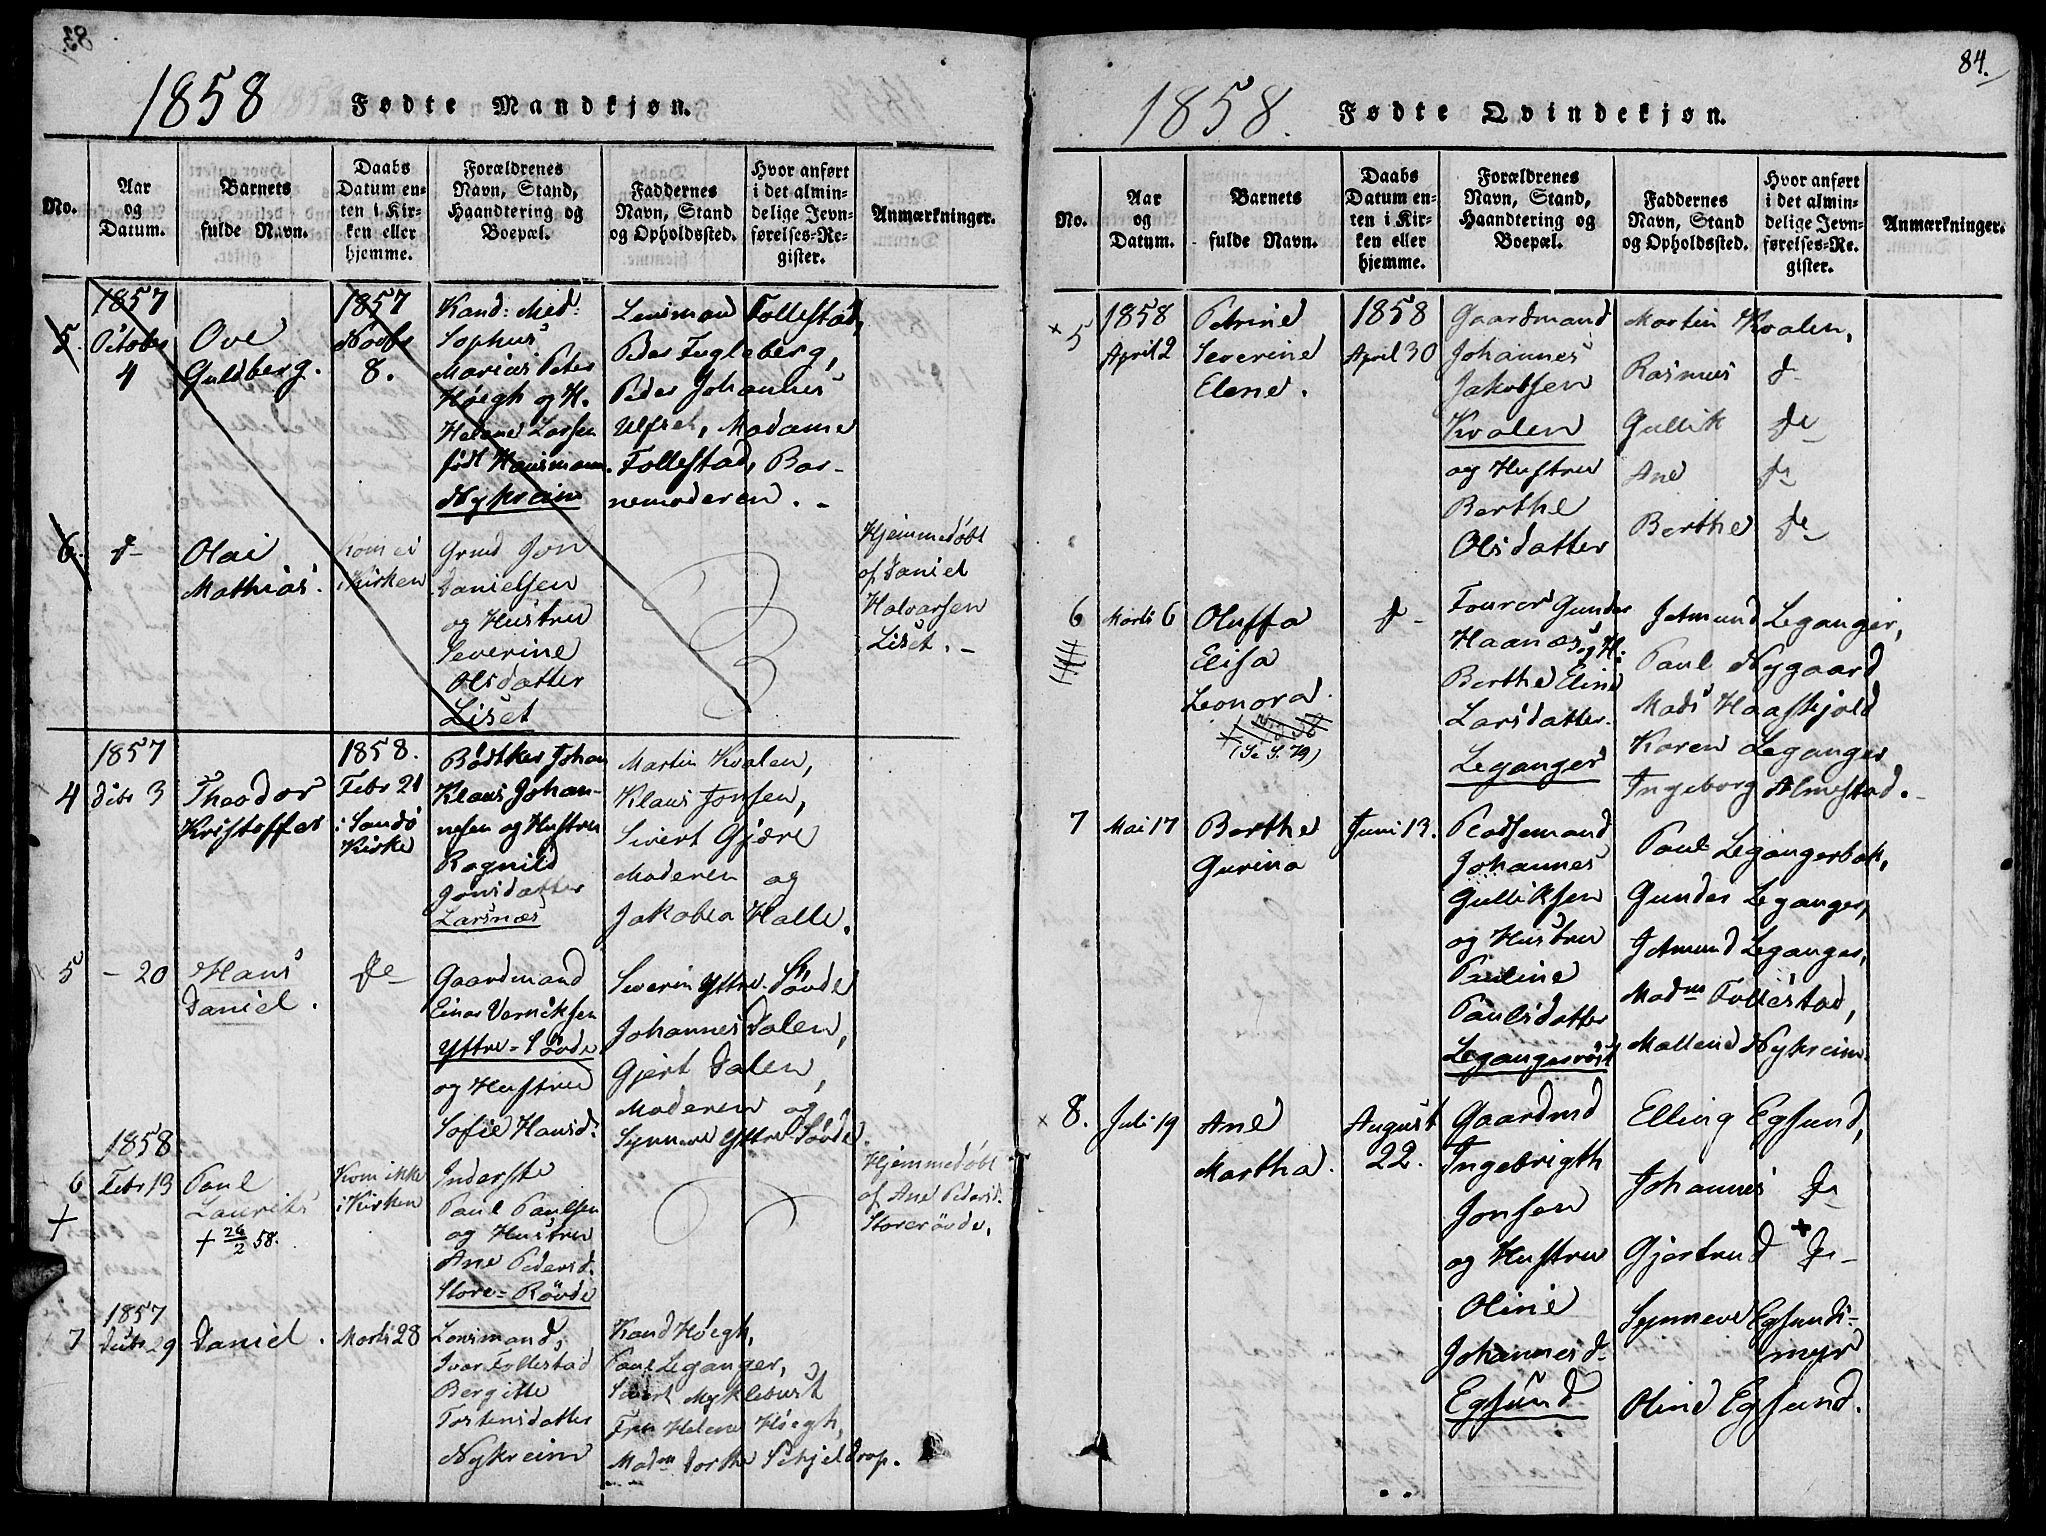 83.
1858 Fødte Mandkjøn.
No.
Aar og Datum.
Barnets fulde Navn.
Daabs Datum enten i Kirken eller hjemme.
Forældrenes Navn, Stand, Haandtering og Boepæl.
Faddernes Navn, Stand og Opholdssted.
Hvor anført i det almindelige Jevnførelses-Register.
Anmærkninger.
5.
1857
Octobr
4
Ove
Guldberg.
1857
Novbr
8.
Kand: Med:
Sophus
Marius Peter
Høegh og H.
Helene Larsen
født Hausmann.
Nykreim
Lensmand Follestad,
Peder Fugleberg,
Peder Johannes
Ulfset, Madame
Follestad, Bar-
nemoderen. -
6.
d-
Olai
Mathias.
Kom ei
i Kirken
Grmd Jon
Danielsen
og Hustru
Severine
Olsdatter
Liset
Hjemmedøbt
af Daniel
Halvorsen
Liset. -
4
1857
Decbr 3
Theodor
Kristoffer
1858.
Febr 21
i Sandö
Kirke
Bødtker Johan
Klaus Johan-
nesen og Hustru
Ragnild
Jonsdatter
Larsnæs
Martin Kvalen,
Klaus Jonsen,
Sivert Gjære
Moderen og
Jakobea Halle.
5
- 20
Hans
Daniel.
de
Gaardmand
Einar Verniksen
Yttre-Søvde
og Hustru
Sofie Hansd.
Severin Yttre Søvde
Johannes Dalen,
Gjert Dalen,
Moderen og
Synneve Yttre Søvde.
6
†
1858
Febr 13
Paul
Laurits
† 26/2 58.
Kom ikke
i Kirken
Inderste
Paul Paulsen
og Hustru
Ane Pedersd.
Store-Rövde
Hjemmedøbt
af Ane Pedersd.
Storerövde.
7
1857
Decbr 29
Daniel.
Marts 28
Lensmand,
Ivar Follestad
Bergitte
Torstensdatter
Nykreim
Kand Høegh,
Paul Leganger,
Sivert Myklebust
Fru Helene Høegh,
Mad.m Dorthe Schjeldrop.
84.
1858. Fødte Qvindekjøn.
No.
Aar og Datum.
Barnets fulde Navn.
Daabs Datum enten i Kirken eller hjemme.
Forældrenes Navn, Stand, Haandtering og Boepæl.
Faddernes Navn, Stand og Opholdssted.
Hvor anført i det almindelige Jevnførelses-Register.
Anmærkninger.
x 5
1858
April 2
Petrine
Severine
Elene.
1858
April 30
Gaardmand
Johannes
Jakobsen
Kvalen
og Hustru
Berthe
Olsdatter
Martin Kvalen,
Rasmus d-
Gullik de
Ane de
Berthe de
6
Marts 6
Oluffa
Elisa
Leonora.
(Se S. 79)
d-
Fourer Gunder
Haanæs og H:
Berthe Eline
Larsdatter.
Leganger
Jetmund Leganger,
Paul Nygaard
Mads Haaskjold
Karen Leganger
Ingeborg Almestad. -
7
Mai 17
Berthe
Gurina
Juni 13.
Pladsemand
Johannes
Gulliksen
og Hustru
Pauline
Paulsdatter
Legangerröst
Paul Legangerbak,
Gunder Leganger,
Jetmund Leganger,
Mad.m Follestad,
Mallene Nykreim.
x 8.
Juli 19
Ane
Martha.
August
22.
Gaardmd
Ingebrigth
Jonsen
og Hustru
Oline
Johannesd.
Egsund
Elling Egsund,
Johannes de
Gjertrud de-
Synneve Egsunds-
myr
Oline Egsund.